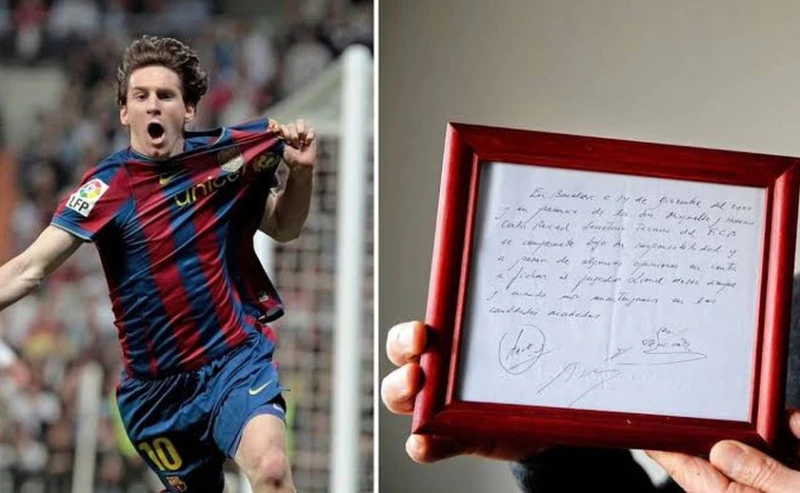 LFP
unicef
10
En Barcelona a 14 de Diciembre del 2000
y en presencia de los Srs Minguella y Horacio
Carles Rexach Secretario Técnico del F.C.B
se compromete bajo su responsabilidad y
a pesar de algunas opiniones en contra
a fichar al jugador Lionel Messi siempre
y cuando nos mantengamos en las
cantidades acordadas